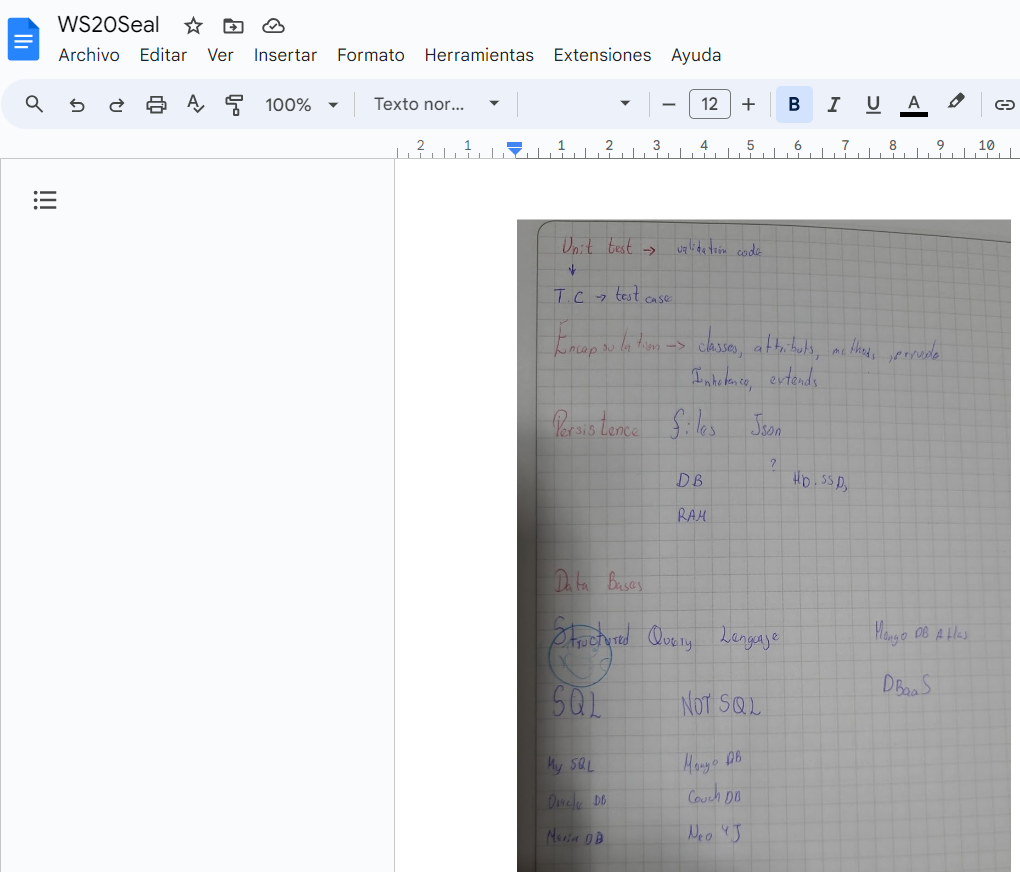 WS20Seal
Archivo Editar Ver Insertar Formato Herramientas Extensiones Ayuda
100% Texto nor... − 12 + B I U A
2 1 1 2 3 4 5 6 7 8 9 10
Unit test → validation code
↓
T.C → test case
Encapsulation → classes, attributs, methods, private
extends
Persistence files Json
?
DB HD.SSD,
RAM
Data Bases
Structured Query Lenguaje Mongo DB Atlas
DBaaS
SQL NOT SQL
My SQL Mongo DB
Oracle DB Couch DB
Maria DB Neo 4J